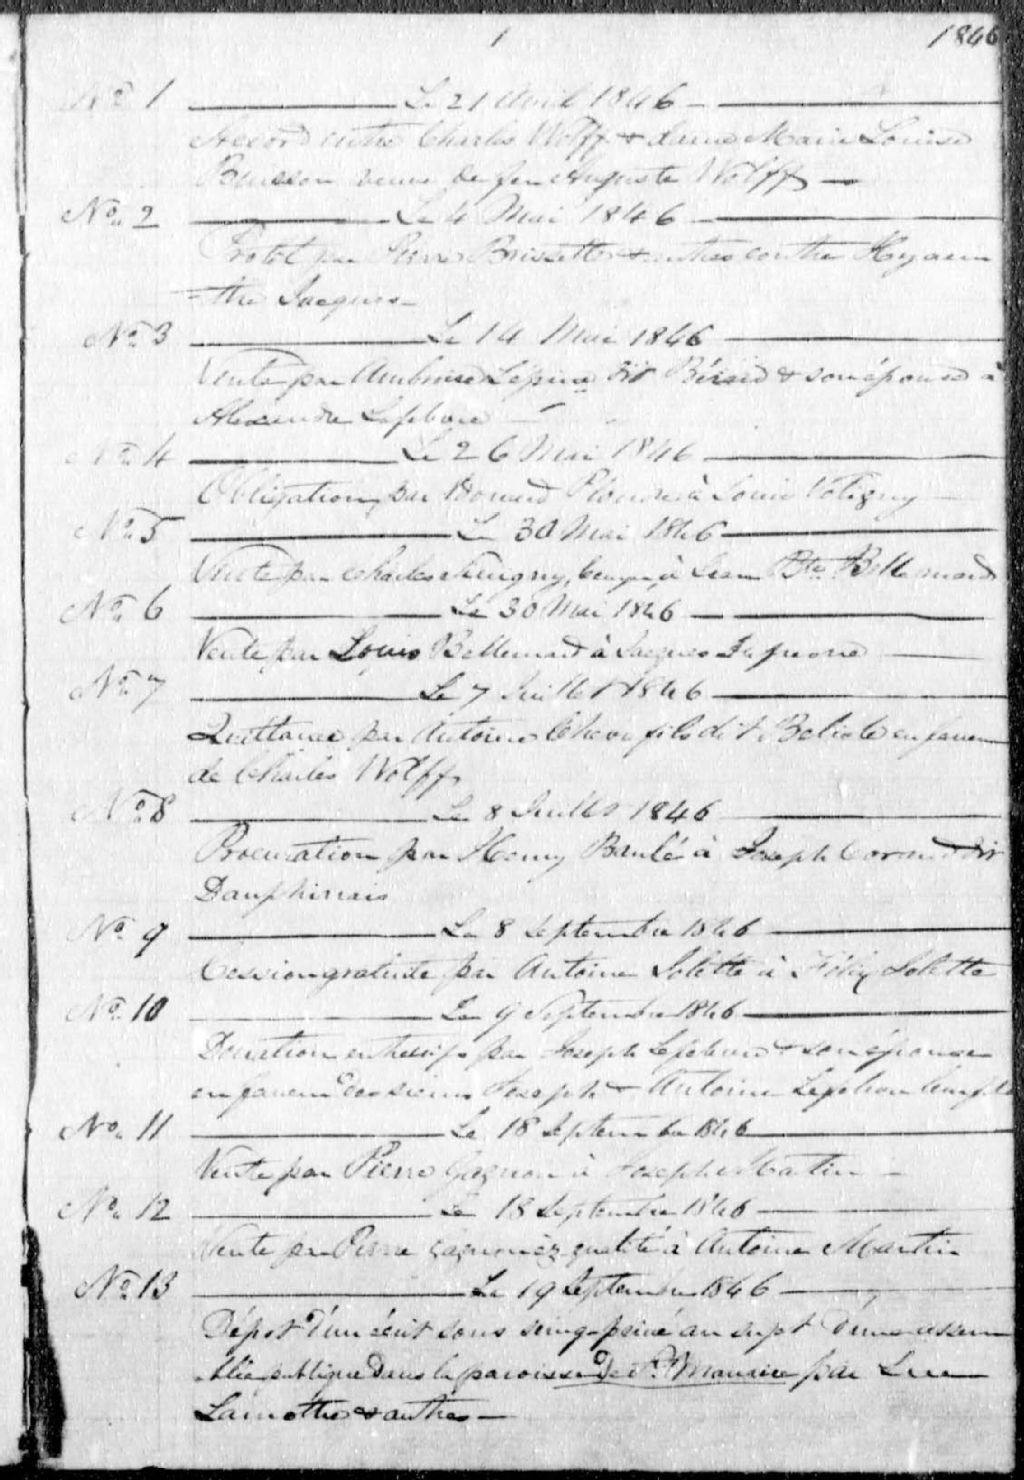 1 1846
No. 1 Le 21 Avril 1846
Accord entre Charles Wolff & dame Marie Louise
Buisson veuve de feu Auguste Wolff
No. 2 Le 4 Mai 1846
Protêt par Pierre Brissette & autres contre Hyacin
=the Jacques
No. 3 Le 14 Mai 1846
Vente par Ambroise Lépine dit Bérard & son épouse à
Alexandre Lefebvre
No. 4 Le 26 Mai 1846
Obligation par à Louis Votigny
No. 5 Le 30 Mai 1846
Vente par Charles à Jean Bte. Bellemard
No. 6 Le 30 Mai 1846
Vente par Louis Bellemard à Jacques
No. 7 Le 7 Juillet 1846
Quittance par Antoine fils dit Belisle en faveur
de Charles Wolff
No. 8 Le 8 Juillet 1846
Procuration par Henry Baulé à Joseph dit
Dauphinais
No. 9 Le 8 Septembre 1846
Cession gratuite par Antoine Lolette à Lolette
No. 10 Le 9 Septembre 1846
Donation entrevifs par Joseph Lefebvre & son épouse
en faveur des sieurs Joseph & Antoine
No. 11 Le 18 Septembre 1846
Vente par Pierre Gagnon à Joseph Martin
No. 12 Le 18 Septembre 1846
Vente par Pierre Gagnon èz qualité à Antoine Martin
No. 13 Le 19 Septembre 1846
Dépot d'un écrit sous seing-privé au sujet d'une assem
blée publique dans la paroisse de St. Maurice par Luc
Lamothe & autres